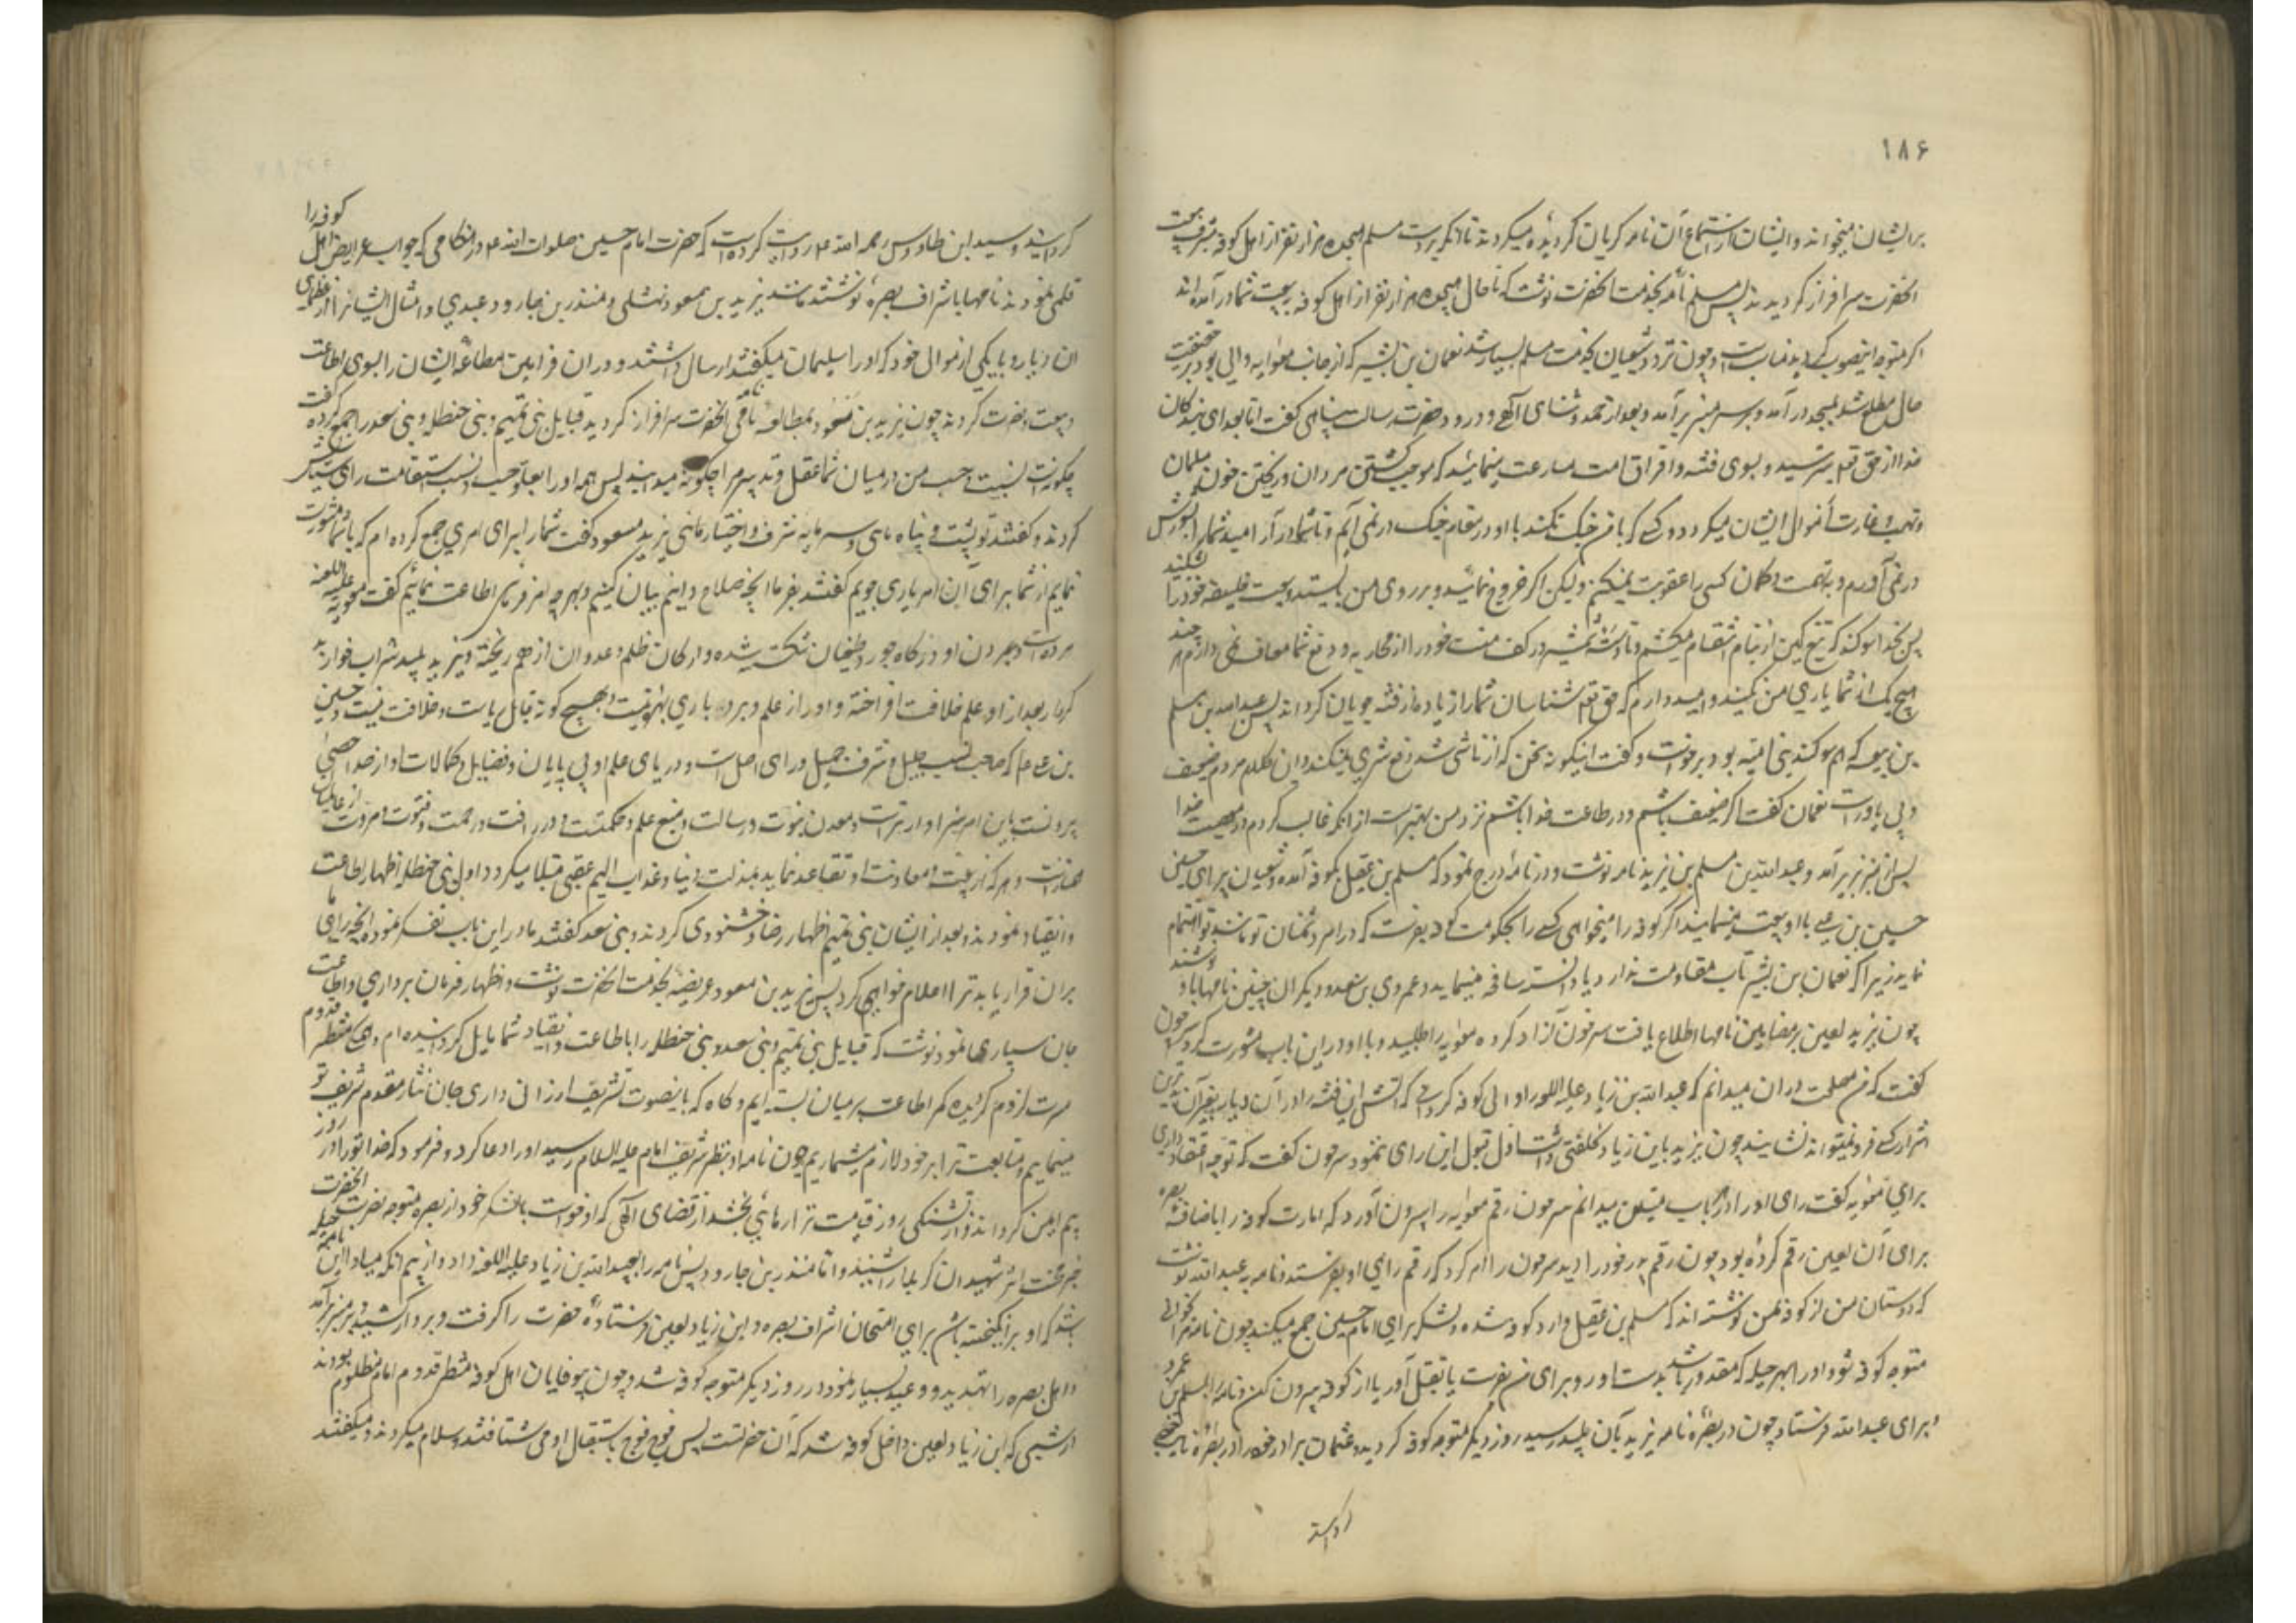 ۱۸۶
بر ایشان میخواند و ایشان از استماع آن نامه کریان کردیده میکردند تا آنکه بر دست مسلم هیجده هزار نفر از اهل کوفه بشرف بیعت
آنحضرت سرافراز کردیدند پس مسلم نامه بخدمت آنحضرت نوشت که تا حال هیجده هزار نفر از اهل کوفه به بیعت شما در آمده اند
اکر متوجه اینصوب کردید مناسبست و چون تردد شیعیان بخدمت مسلم بسیار شد نعمان بن بشیر که از جانب معوایه والی بود بر حقیقت
حال مطلع شد بمسجد در آمد و بر سر منبر بر آمد و بعد از حمد و ثنای آلهی و درود حضرت رسالت پناهی کفت اما بعد ای بندکان
خدا از حق تعم بترسید و بسوی فتنه و افراق امت مسارعت منمائید که موجب کشتن مردان و ریختن خون مسلمانان
و نهب و غارت أموال ایشان میکردد و کسی که با من جنک نکند با او در مقام جنک در نمی آیم و تا شما در آرامید شما را بشورش
در نمی آورم و به تهمت و کمان کسی را عقوبت نمیکنم ولیکن اکر خروج نمائید و بر روی من بایستید و بیعت خلیفه خود را بشکنید
پس بخدا سوکند که تیغ کین از نیام انتقام میکشم و تا دسته شمشیر در کف منست خود را از محاربه و دفع شما معاف نمی دارم هر چند
هیچ یک از شما یاری من نکنید و امیدوارم که حق تعم شناسان شما زیاده از فتنه جویان کرداند پس عبدالله بن مسلم
بن ربیعه که هم سوکند بنی امیه بود برخواست و کفت اینکونه سخن که از تو ناشی شد دفع شر نمیکند و این کلام مردم ضعیف
و بی یاورست نعمان کفت اکر ضعیف باشم و در طاعت خدا باشم نزد من بهتر است از آنکه غالب کردم در معصیت خدا
پس از منبر بزیر آمد و عبدالله بن مسلم بن یزید نامه نوشت و در نامه درج نمود که مسلم بن عقیل بکوفه آمده و شیعیان برای حسین
حسین بن علی با او بیعت مینمایند اکر کوفه را میخواهی کسی را بحکومت کوفه بفرست که در امر دشمنان تو مانند تو اهتمام
نماید زیرا که نعمان بن بشیر تاب مقاومت ندارد یا دانسته مسافه مینماید و عمر بن سعد و دیکران چنین نامها باو نوشتند
چون یزید لعین بر مضامین نامها اطلاع یافت سرخون آزاد کرده معوایه را طلبید و با او در این باب مشورت کرد سرخون
کفت که من مصلحت در ان میدانم که عبدالله بن زیاد علیه اللعنه را والی کوفه کردانی که آتش این فتنه را در آن دیار بغیر آن بدترین
اشرار کسی فرو نمیتواند نشانید چون یزید باین زیاد کلفتی داشت اول قبول این رای ننمود سرخون کفت که تو چه اعتقاد داری
برای معویه کفت رای او را در هر باب متین میدانم سرخون رقم معویه را بیرون آورد که امارت کوفه را باضافه بصره
برای آن لعین رقم کرده بود چون رقم پدر خود را دید سرخون را امر کرد که رقم را برای او بفرستد و نامه به عبدالله نوشت
که دوستان من از کوفه بمن نوشته اند که مسلم بن عقیل وارد کوفه شده و لشکر برای امام حسین جمع میکند چون نامه مرا بخوانی
متوجه کوفه شو و او را بهر حیله که مقدور باشد بدست آور و برای من بفرست یا بقتل آور یا از کوفه بیرون کن و نامه را بمسلم بن عمرو
و برای عبدالله فرستاد چون در بصره نامه یزید بآن پلید رسید روز دیکر متوجه کوفه کردید و عثمان برادر خود را در بصره نایب خود
کردانید و سید ابن طاوس رحمه الله علیه روایت کرده است که حضرت امام حسین صلوات الله علیه در هنکامی که جواب عرایض اهل کوفه را
قلمی نمودند نامها باشراف بصره نوشتند مانند یزید بن مسعود نهشلی و منذر بن جارود عبدی و امثال ایشانرا از عظمای
ان دیار و با یکی از موالی خود که او را سلیمان میکفتند ارسال داشتند و در ان فرامین مطاعه ایشان را بسوی اطاعت
و بیعت حضرت کردند چون یزید بن مسعود بمطالعه نامه نامی آنحضرت سرافراز کردید قبایل بنی تمیم و بنی حنظله و بنی سعد را جمع کرده کفت
چکونه است نسبت و حسب من در میان شما و عقل و تدبیر مرا چکونه میدانید پس همه او را بعلو حسب و نسب و استقامت رای ستایش
کردند و کفتند تو پشت و پناه مائی و سرمایه شرف و اختیار مائی یزید مسعود کفت شما را برای امری جمع کرده ام که با شما مشورت
نمایم و از شما برای آن امر یاری جویم کفتند بفرما آنچه صلاح دانیم بیان کنیم و بهر چه امر فرمائی اطاعت نمائیم کفت معویه علیه اللعنه
مرده است و بمردن او درکاه جور و طغیان شکسته شده و ارکان ظلم و عدوان از هم ریخته و یزید پلید شراب خوار بد
کردار بعد از او علم خلافت افراخته و او را از علم و بردباری بهره نیست و بهیچ کونه قابل ریاست و خلافت نیست و حسین
بن علی علیه السلام که صاحب نسب جلیل و شرف جمیل و رای اصیل است و دریای علم او بی پایان و فضایل و کمالات او از حد احصی
بیرونست باین امر سزاوارتر است و معدن نبوت و رسالت و منبع علم و حکمتست و در رافت و رحمت و فتوت و مروت از عالمیان
ممتازست و هر که از بیعت و معاونت او تقاعد نماید بمذلت دنیا و عذاب الیم عقبی مبتلا میکردد اول بنی حنظله اظهار اطاعت
و انقیاد نمودند و بعد از ایشان بنی تمیم اظهار رضا و خشنودی کردند و بنی سعد کفتند ما در این باب تفکر نموده آنچه رای ما
بر ان قرار یابد ترا اعلام خواهیم کرد پس یزید بن مسعود عریضه بخدمت آنحضرت نوشت و اظهار فرمان برداری و اطاعت
جان سپاری ها نمود و نوشت که قبایل بنی تمیم و بنی سعد و بنی حنظله را باطاعت و انقیاد شما مایل کردانیده ام و همکی منتظر قدوم
مسرت لزوم کردیده کمر اطاعت بر میان بسته ایم و کاه که باینصوت تشریف ارزانی داری جان نثار مقدم شریف تو
مینمائیم و متابعت ترا بر خود لازم میشماریم چون نامه او بنظر شریف امام علیه السلام رسید او را دعا کرد و فرمود که خدا تو را در روز
بیم ایمن کرداند و از تشنکی روز قیامت ترا رهائی بخشد از قضای آلهی که او خواست با لشکر خود از بصره متوجه نصرت آنحضرت
خبر شهادت اثر شهیدان کربلا را شنید و اما منذر بن جارود پس نامه را بعبدالله بن زیاد علیه اللعنه داد و از بیم آنکه مبادا این نامه حیله
باشد که او بر انکیخته باش برای امتحان اشراف بصره و ابن زیاد لعین فرستاده حضرت را کرفت و بر دار کشید و بر منبر بر آمد
و اهل بصره را تهدید و وعید بسیار نمود و در روز دیکر متوجه کوفه شد و چون بیوفایان اهل کوفه منتظر قدوم امام مظلوم بودند
در شبی که ابن زیاد لعین داخل کوفه شد که آن حضرتست پس فوج فوج باستقبال او می شتافتند و سلام میکردند و میکفتند